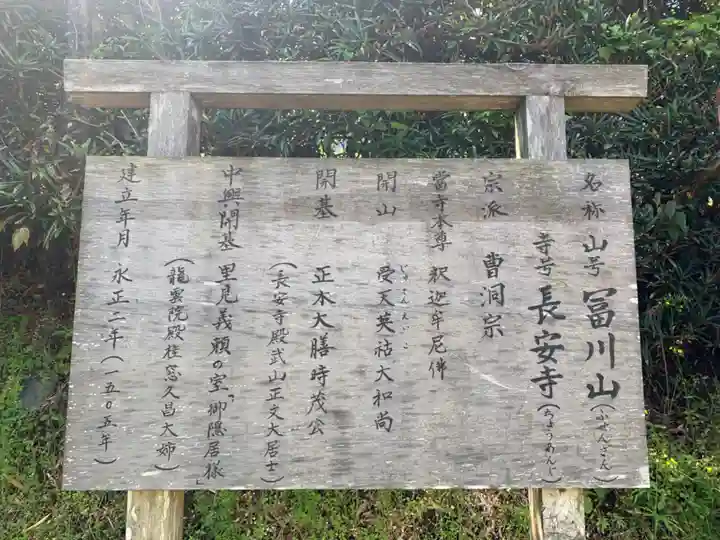 名称 山号 冨川山(ふせんさん)
寺号 長安寺(ちょうあんじ)
宗派 曹洞宗
當寺本尊 釈迦牟尼佛
開山 受天英祜大和尚
じゅてんえいこ
開基 正木大膳時茂公
(長安寺殿武山正文大居士)
中興開基 里見義頼の室「御隠居様」
(龍雲院殿桂窓久昌大姉)
建立年月 永正二年(一五〇五年)